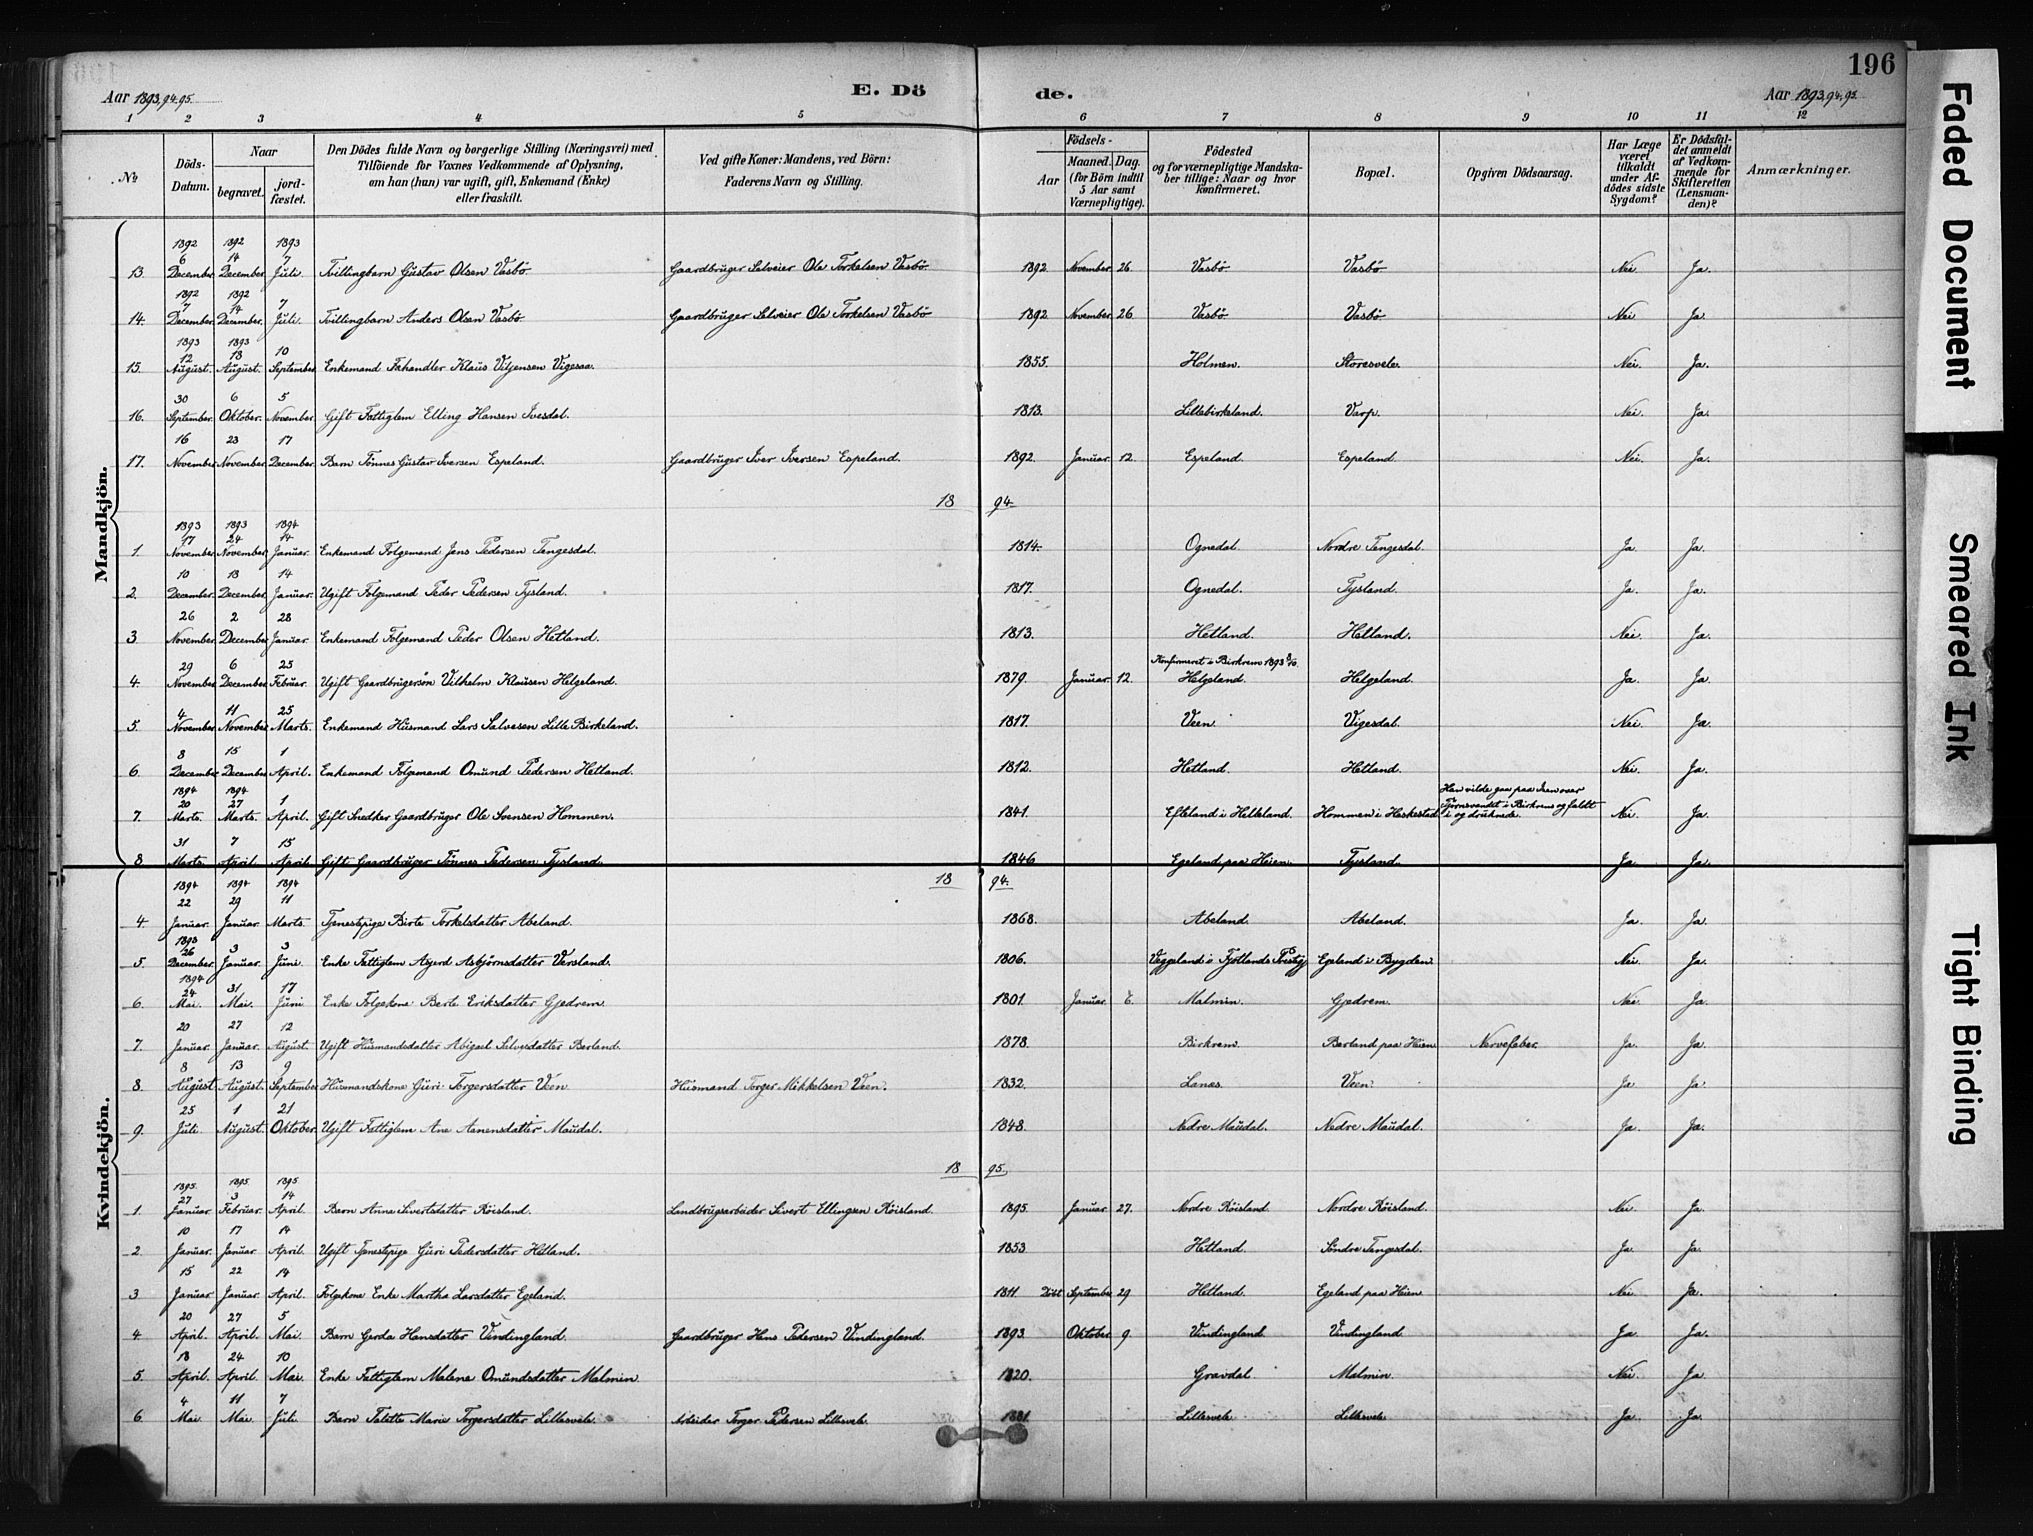 196
Aar 1893, 94. 95.
E. Dö
de.
Aar 1893, 94, 95.
1 2 3 4 5 6 7 8 9 10 11 12
No
Döds-Datum.
Naar
begravet.
jord-fæstet.
Den Dödes fulde Navn og borgerlige Stilling (Næringsvei) med
Tilföiende for Voxnes Vedkommende af Oplysning,
om han (hun) var ugift, gift, Enkemand (Enke)
eller fraskilt.
Ved gifte Koner: Mandens, ved Börn:
Faderens Navn og Stilling.
Födsels-
Aar
Maaned. Dag.
(for Börn indtil
5 Aar samt
Værnepligtige).
Födested
og for værnepligtige Mandska-
ber tillige: Naar og hvor
konfirmeret.
Bopæl.
Opgiven Dödsaarsag.
Har Læge
været
tilkaldt
under Af-
dödes sidste
Sygdom?
Er Dödsfal-
det anmeldt
af Vedkom-
mende for
Skifteretten
(Lensman-
den)?
Anmærkninger.
Mandkjön.
1892 1892 1893
6 14 7
13. December. December. Juli. Tvillingbarn Gustav Olsen Vasbø Gaardbruger Selveier Ole Torkelsen Vasbø 1892. November. 26. Vasbø Vasbø Nei. Ja.
1892 1892
7 14 7
14. December. December. Juli. Tvillingbarn Anders Olsen Vasbø Gaardbruger Selveier Ole Torkelsen Vasbø 1892. November. 26. Vasbø Vasbø Nei Ja.
1893 1893
12 18 10
15. August. August. September Enkemand Klaus Viljensen Vigesaa. 1855. Holmen. Storesvele. Nei. Ja.
30 6 5
16. September. Oktober. November. Gift Fattiglem Elling Hansen Ivesdal. 1813. Lillebirkeland. Varp. Nei. Ja.
16 23 17
17. November. November. December. Barn Tønnes Gustav Iversen Espeland. Gaardbruger Iver Iversen Espeland. 1892. Januar. 12. Espeland. Espeland. Nei. Ja.
18 94.
1893 1893 1894
17 24 14
1. November. November. Januar. Enkemand Folgemand Jens Pedersen Tengesdal. 1814. Ognedal Nordre Tengesdal. Ja. Ja.
10 18 14
2. December. December. Januar. Ugift Folgemand Peder Pedersen Tysland. 1817. Ognedal. Tysland. Ja. Ja.
26 2 28
3 November. December. Januar. Enkemand Folgemand Peder Olsen Hetland. 1813. Hetland. Hetland. Nei. Ja.
29 6 25 Konfirmeret i Birkrem 1893 8/10.
4. November. December. Februar. Ugift Gaardbrugersøn Vilhelm Klausen Helgeland. 1879. Januar. 12. Helgeland. Helgeland. Ja Ja
4 11 25
5. November November. Marts. Enkemand Husmand Lars Salvesen Lille Birkeland. 1817. Veen. Vigesdal. Nei. Ja.
8 15 1
6. December. December. April. Enkemand Folgemand Omund Pedersen Hetland. 1812. Hetland. Hetland. Nei. Ja.
1894 1894
20 27 1
7. Marts. Marts. April. Gift Snedker Gaardbruger Ole Svensen Hommen. 1841. Efteland i Helleland. Hommen i Heskestad Han vilde gaa paa Isen over
Tjørnsvandet i Birkrem og faldt
i og druknede. Nei. Ja.
31 7 15
8 Marts. April. April. Gift Gaardbruger Tønnes Pedersen Tysland. 1846 Egeland paa Heien. Tysland. Ja. Ja.
Kvindekjön.
18 94.
1894 1894 1894
22 29 11
4. Januar. Januar. Marts. Tjenestepige Birte Torkelsdatter Abeland. 1868. Abeland. Abeland. Ja. Ja.
1893
26 3 3
5. December. Januar. Juni. Enke Fattiglem Asgerd Asbjørnsdatter Versland. 1806. Veggeland i Fjotlands Præstgj. Egeland i Bygden. Nei. Ja.
1894
24 31 17
6. Mai. Mai. Juni Enke Folgekone Berte Eriksdatter Gjedrem. 1801 Januar 6. Malmin. Gjedrem. Nei. Ja
20 27 12
7. Januar. Januar. August. Ugift Husmandsdatter Abigael Berland. 1878. Birkrem. Berland paa Heien Nervefeber. Ja. Ja.
8 13 9
8. August. August. September Husmandskone Guri Torgersdatter Veen Husmand Torger Mikkelsen Veen. 1832. Lanes. Veen. Ja Ja.
25 1 21
9. Juli. August. Oktober. Ugift Fattiglem Ane Aanensdatter Maudal. 1848. Nedre Maudal. Nedre Maudal. Ja. Ja.
18 95.
1895. 1895 1895
27 3 14
1. Januar. Februar. April. Barn Anna Sivertsdatter Røisland. Landbrugsarbeider Sivert Ellingsen Røisland. 1895. Januar. 27. Nordre Røisland. Nordre Røisland. Nei. Ja.
10 17 14
2. Januar. Januar. April. Ugift Tjenestepige Guri Pedersdatter Hetland. 1853 Hetland. Søndre Tengesdal. Ja. Ja.
15 22 14
3 Januar. Januar. April. Folgekone Enke Martha Larsdatter Egeland. 1811 Døbt September 29 Hetland. Egeland paa Heien Nei. Ja.
20 27 5
4 April. April. Mai. Barn Gerda Hansdatter Vindingland. Gaardbruger Hans Pedersen Vindingland. 1893. Oktober 9 Vindingland Vindingland Ja Ja.
18 24 10
5. April. April. Mai. Enke Fattiglem Malene Omundsdatter Malmin 1820. Gravdal Malmin. Nei. Ja.
4 11 7
6. Mai. Mai. Juli. Barn Marie Torgersdatter Lillesvele. Arbeider Torger Pedersen Lillesvele. 1881. Lillesvele Lillesvele Ja. Ja.
Faded Document
Smeared Ink
Tight Binding